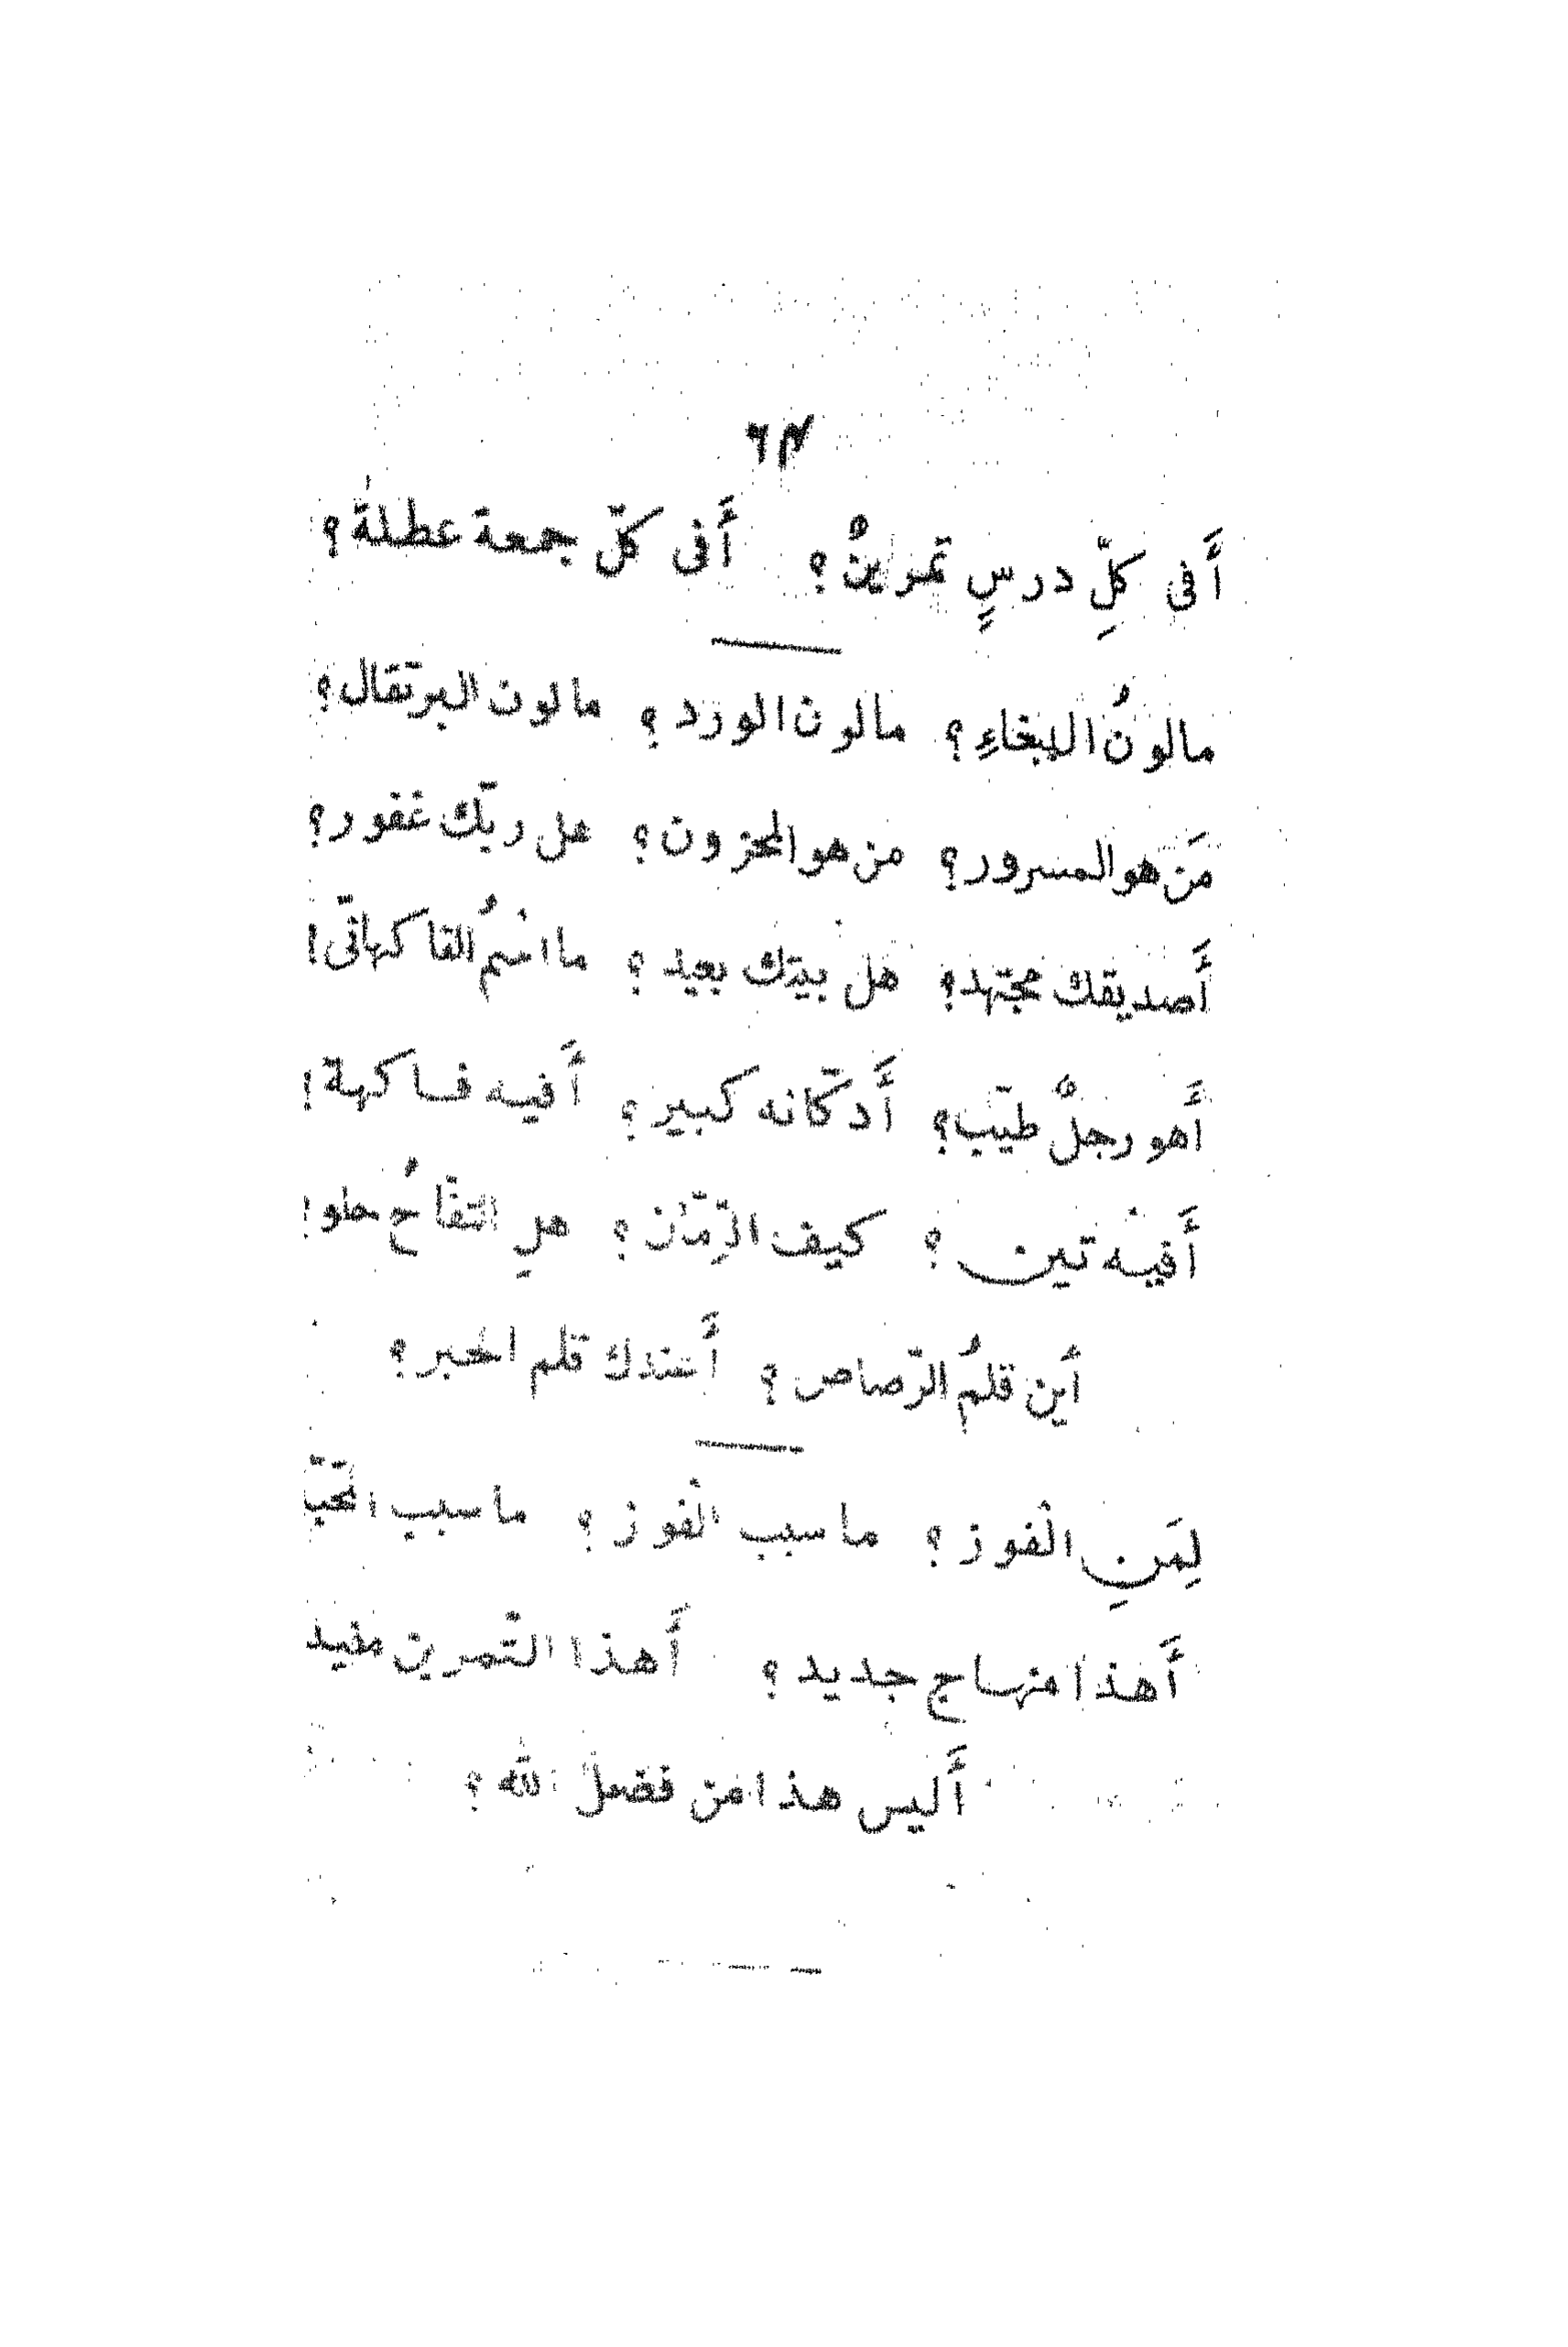 ٦٣
أَفى كلِّ درسٍ تمرينٌ؟ أَفى كلّ جمعة عطلة؟
مالونُ الببغاءِ؟ مالون الورد؟ مالون البرتقال؟
مَن هو المسرور؟ من هو المحزون؟ هل ربّك غفور؟
أَصديقك مجتهد؟ هل بيتك بعيد؟ ما اسمُ الفاكهانّى؟
أَهو رجلٌ طيّب؟ أَدكّانه كبير؟ أَفيه فاكهة؟
أَفيه تين؟ كيف الرّمّان؟ هلِ التفّاحُ حلو؟
أَين قلمُ الرّصاص؟ أَعندك قلم الحبر؟
لِمَنِ الفوز؟ ما سبب الفوز؟ ما سبب
أَهذا منهاج جديد؟ أَهذا التّمرين مفيد
أَليس هذا من فضل الله؟